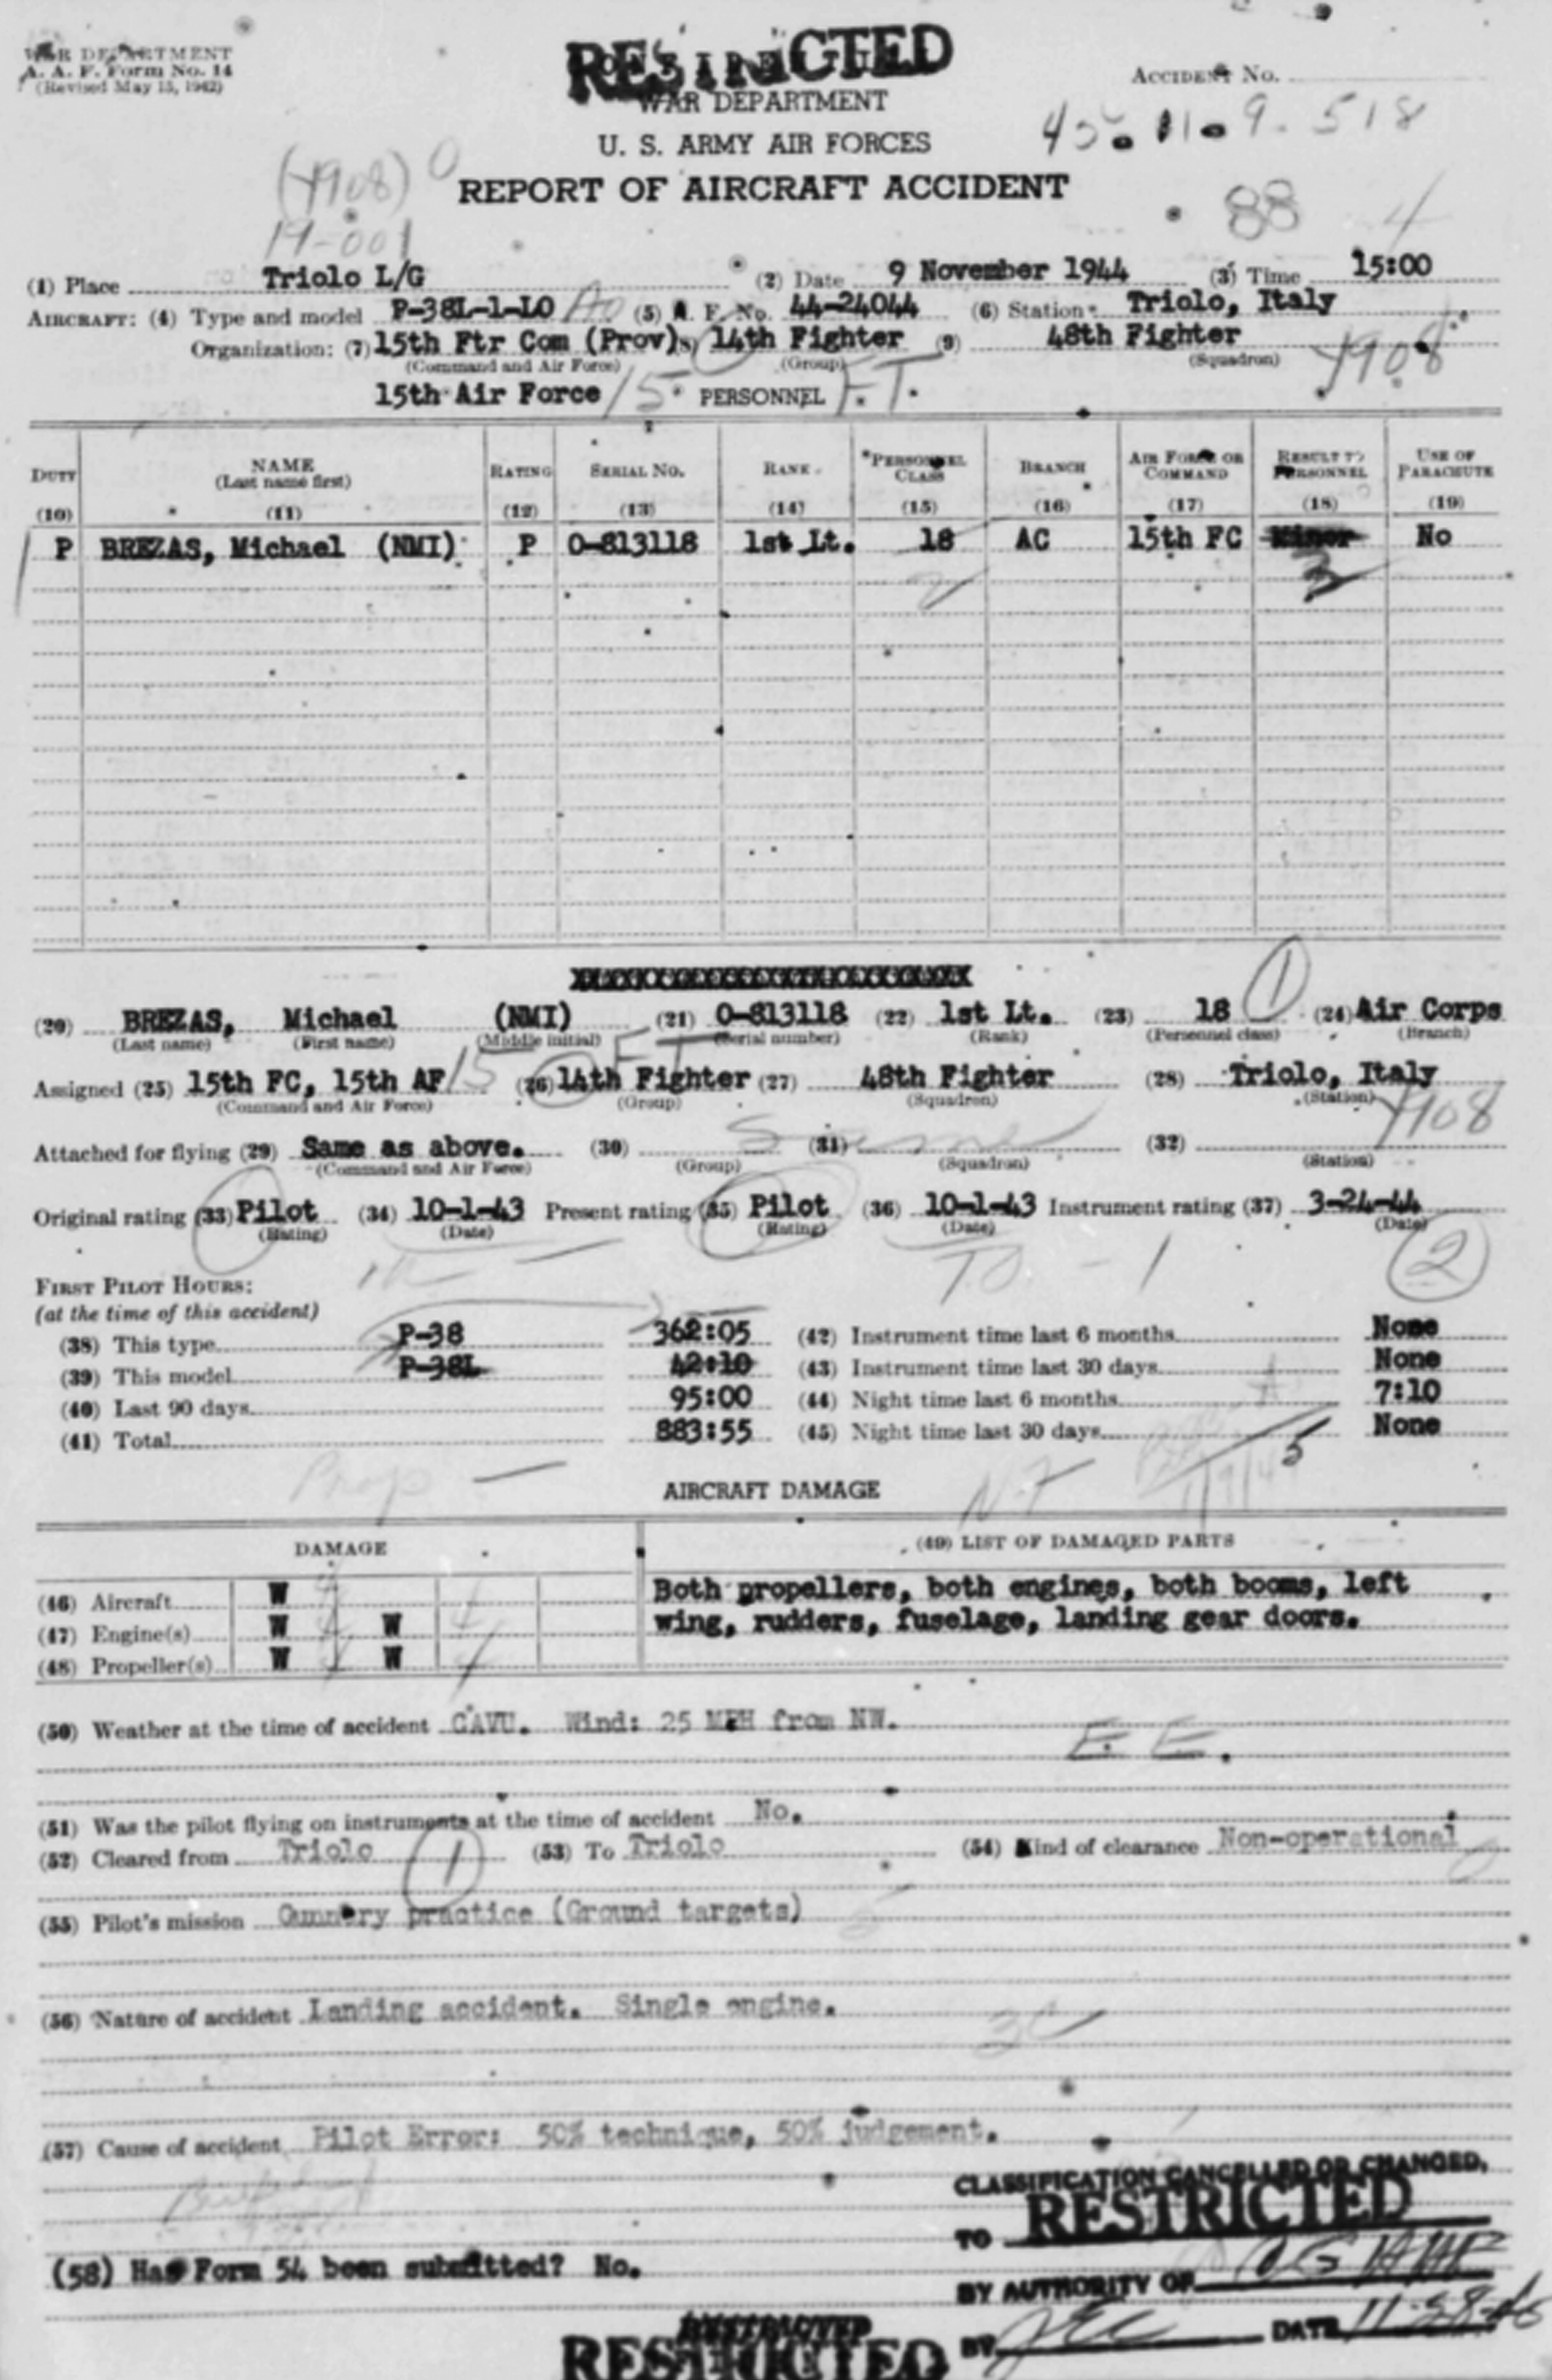 WAR DEPARTMENT
A. A. F. Form No. 14
(Revised May 15, 1942)
RESTRICTED
WAR DEPARTMENT
U. S. ARMY AIR FORCES
REPORT OF AIRCRAFT ACCIDENT
ACCIDENT No.
45-11-9-518
(4908) 0
88 4
(1) Place Triolo L/G (2) Date 9 November 1944 (3) Time 15:00
AIRCRAFT: (4) Type and model P-38L-1-LO (5) A. F. No. 44-24044 (6) Station Triolo, Italy
Organization: (7) 15th Ftr Com (Prov) (8) 14th Fighter (9) 48th Fighter
(Command and Air Force) (Group) (Squadron)
15th Air Force 15 PERSONNEL F.T.
DUTY NAME RATING SERIAL No. RANK *PERSONNEL CLASS BRANCH AIR FORCE OR COMMAND RESULT TO PERSONNEL USE OF PARACHUTE
(Last name first)
(10) (11) (12) (13) (14) (15) (16) (17) (18) (19)
P BREZAS, Michael (NMI) P O-813118 1st Lt. 18 AC 15th FC Minor No
3
(20) BREZAS, Michael (NMI) (21) O-813118 (22) 1st Lt. (23) 18 (1) (24) Air Corps
(Last name) (First name) (Middle initial) (Serial number) (Rank) (Personnel class) (Branch)
Assigned (25) 15th FC, 15th AF 15 (26) 14th Fighter (27) 48th Fighter (28) Triolo, Italy
(Command and Air Force) (Group) (Squadron) (Station)
4908
Attached for flying (29) Same as above. (30) (31) Same (32)
(Command and Air Force) (Group) (Squadron) (Station)
Original rating (33) Pilot (34) 10-1-43 Present rating (35) Pilot (36) 10-1-43 Instrument rating (37) 3-24-44
(Rating) (Date) (Rating) (Date) (Date)
TO - 1 (2)
FIRST PILOT HOURS:
(at the time of this accident)
(38) This type P-38 362:05 (42) Instrument time last 6 months None
(39) This model P-38L 42:10 (43) Instrument time last 30 days None
(40) Last 90 days 95:00 (44) Night time last 6 months 7:10
(41) Total 883:55 (45) Night time last 30 days None
Prop
AIRCRAFT DAMAGE
DAMAGE (49) LIST OF DAMAGED PARTS
(46) Aircraft W Both propellers, both engines, both booms, left
(47) Engine(s) W W wing, rudders, fuselage, landing gear doors.
(48) Propeller(s) W W
(50) Weather at the time of accident CAVU. Wind: 25 MPH from NW.
E. E.
(51) Was the pilot flying on instruments at the time of accident No.
(52) Cleared from Triolo (1) (53) To Triolo (54) Kind of clearance Non-operational
(55) Pilot's mission Gunnery practice (Ground targets)
(56) Nature of accident Landing accident. Single engine.
(57) Cause of accident Pilot Error: 50% technique, 50% judgement.
CLASSIFICATION CANCELLED OR CHANGED,
TO RESTRICTED
(58) Has Form 54 been submitted? No.
BY AUTHORITY OF CG AAF
BY JEC DATE 11-28-45
RESTRICTED
RESTRICTED